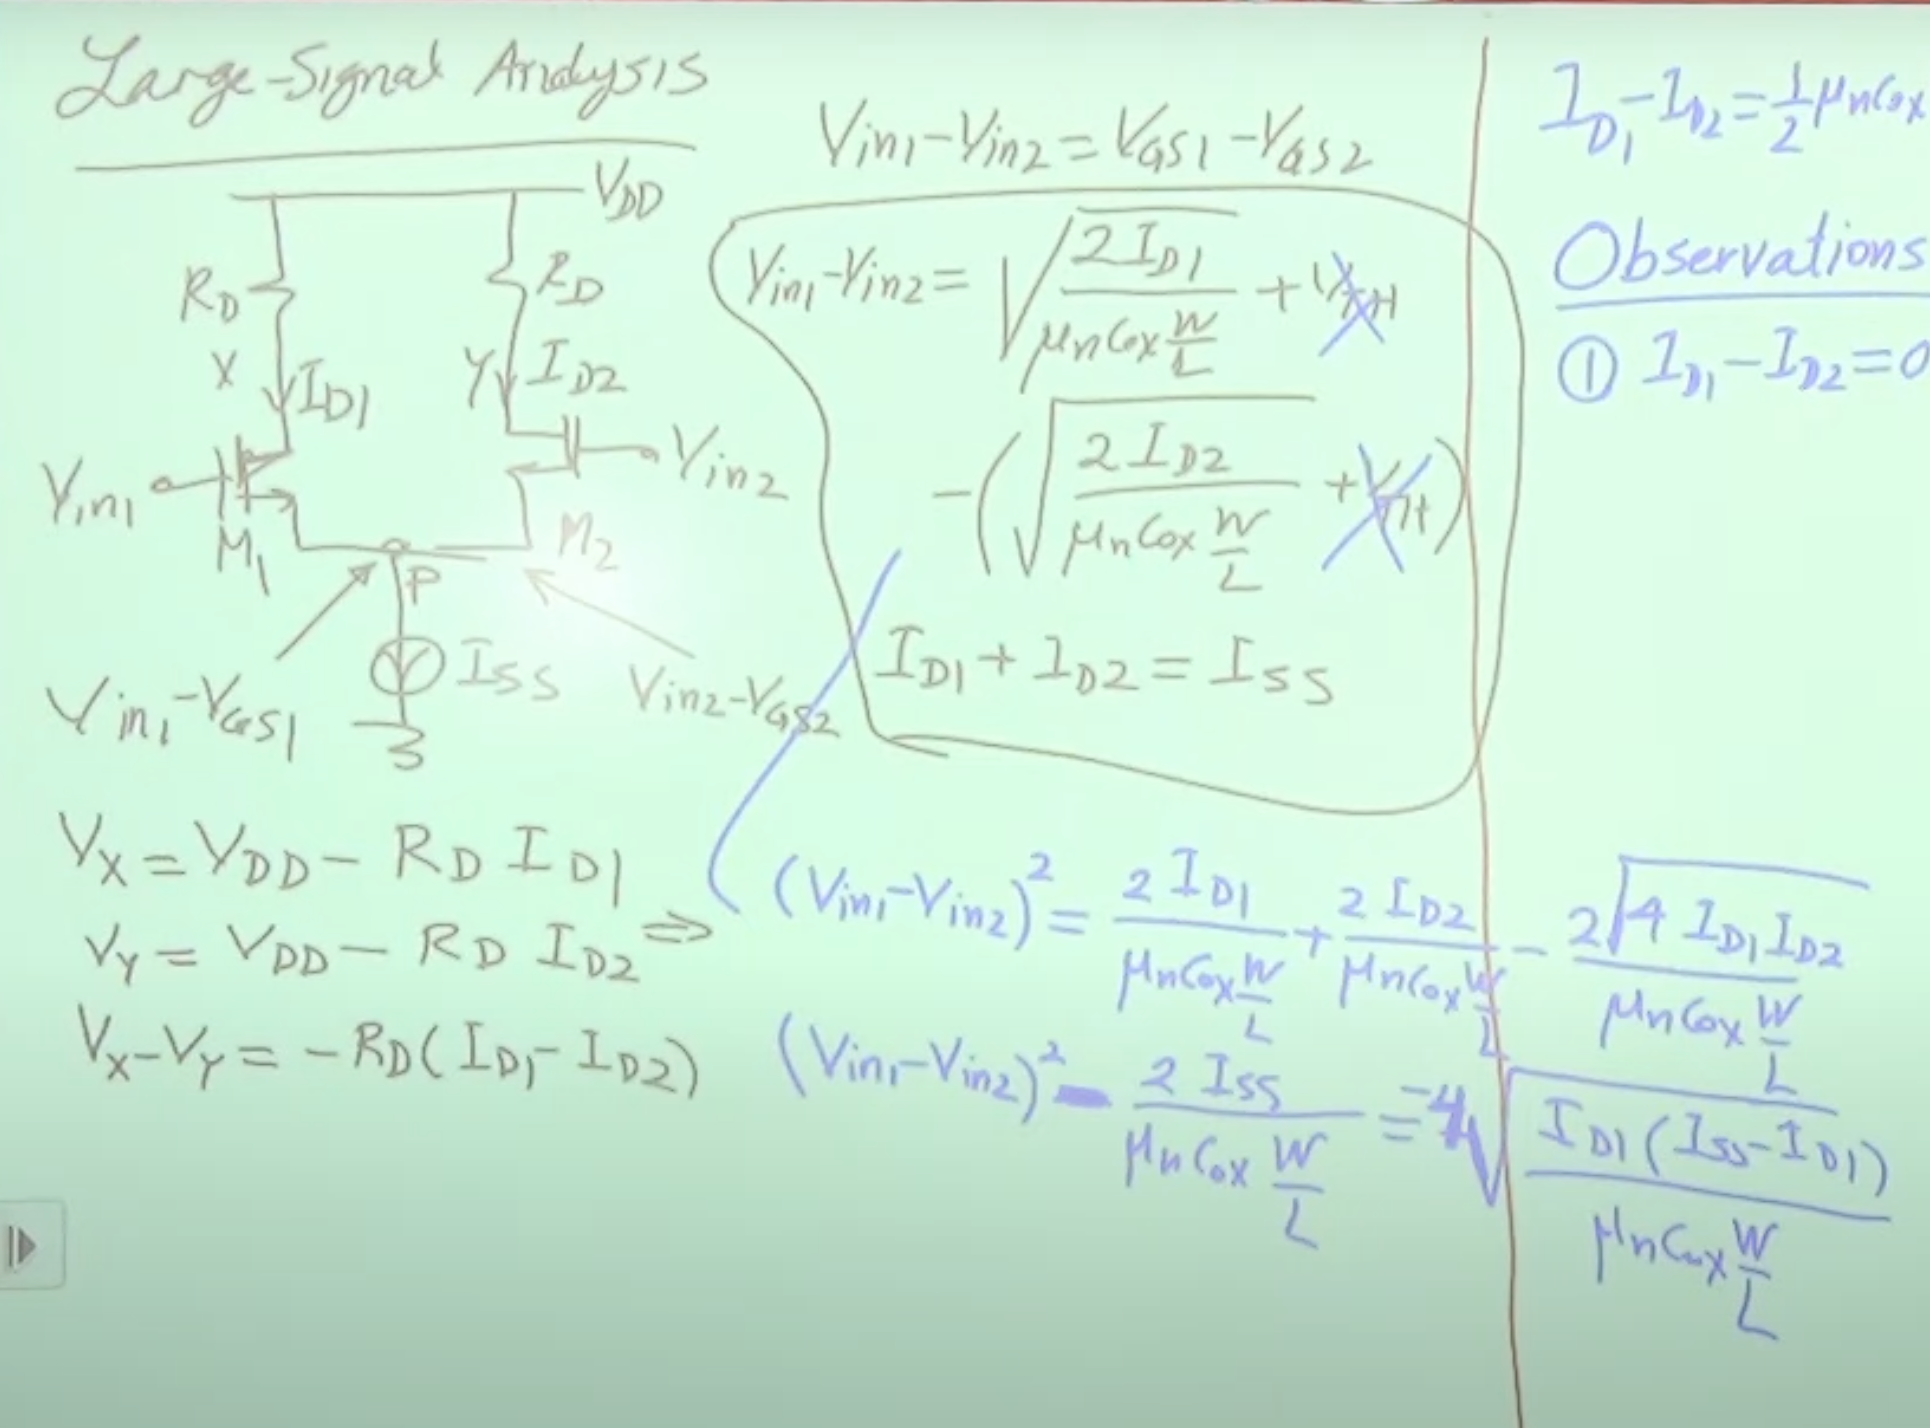 Large-Signal Analysis
VDD
RD
RD
X
ID1
Y
ID2
Vin1
Vin2
M1
M2
P
ISS
Vin1-VGS1
Vin2-VGS2
VX = VDD - RD ID1
VY = VDD - RD ID2 ⇒
VX-VY = -RD(ID1-ID2)
Vin1-Vin2 = VGS1-VGS2
Vin1-Vin2 = √(2ID1 / μnCox W/L) + VTH
-(√(2ID2 / μnCox W/L) + VTH)
ID1 + ID2 = ISS
(Vin1-Vin2)² = 2ID1 / μnCox W/L + 2ID2 / μnCox W/L - 2√4ID1ID2 / μnCox W/L
(Vin1-Vin2)² - 2ISS / μnCox W/L = -4√ID1(ISS-ID1) / μnCox W/L
ID1-ID2 = 1/2 μnCox
Observations
① ID1-ID2=0